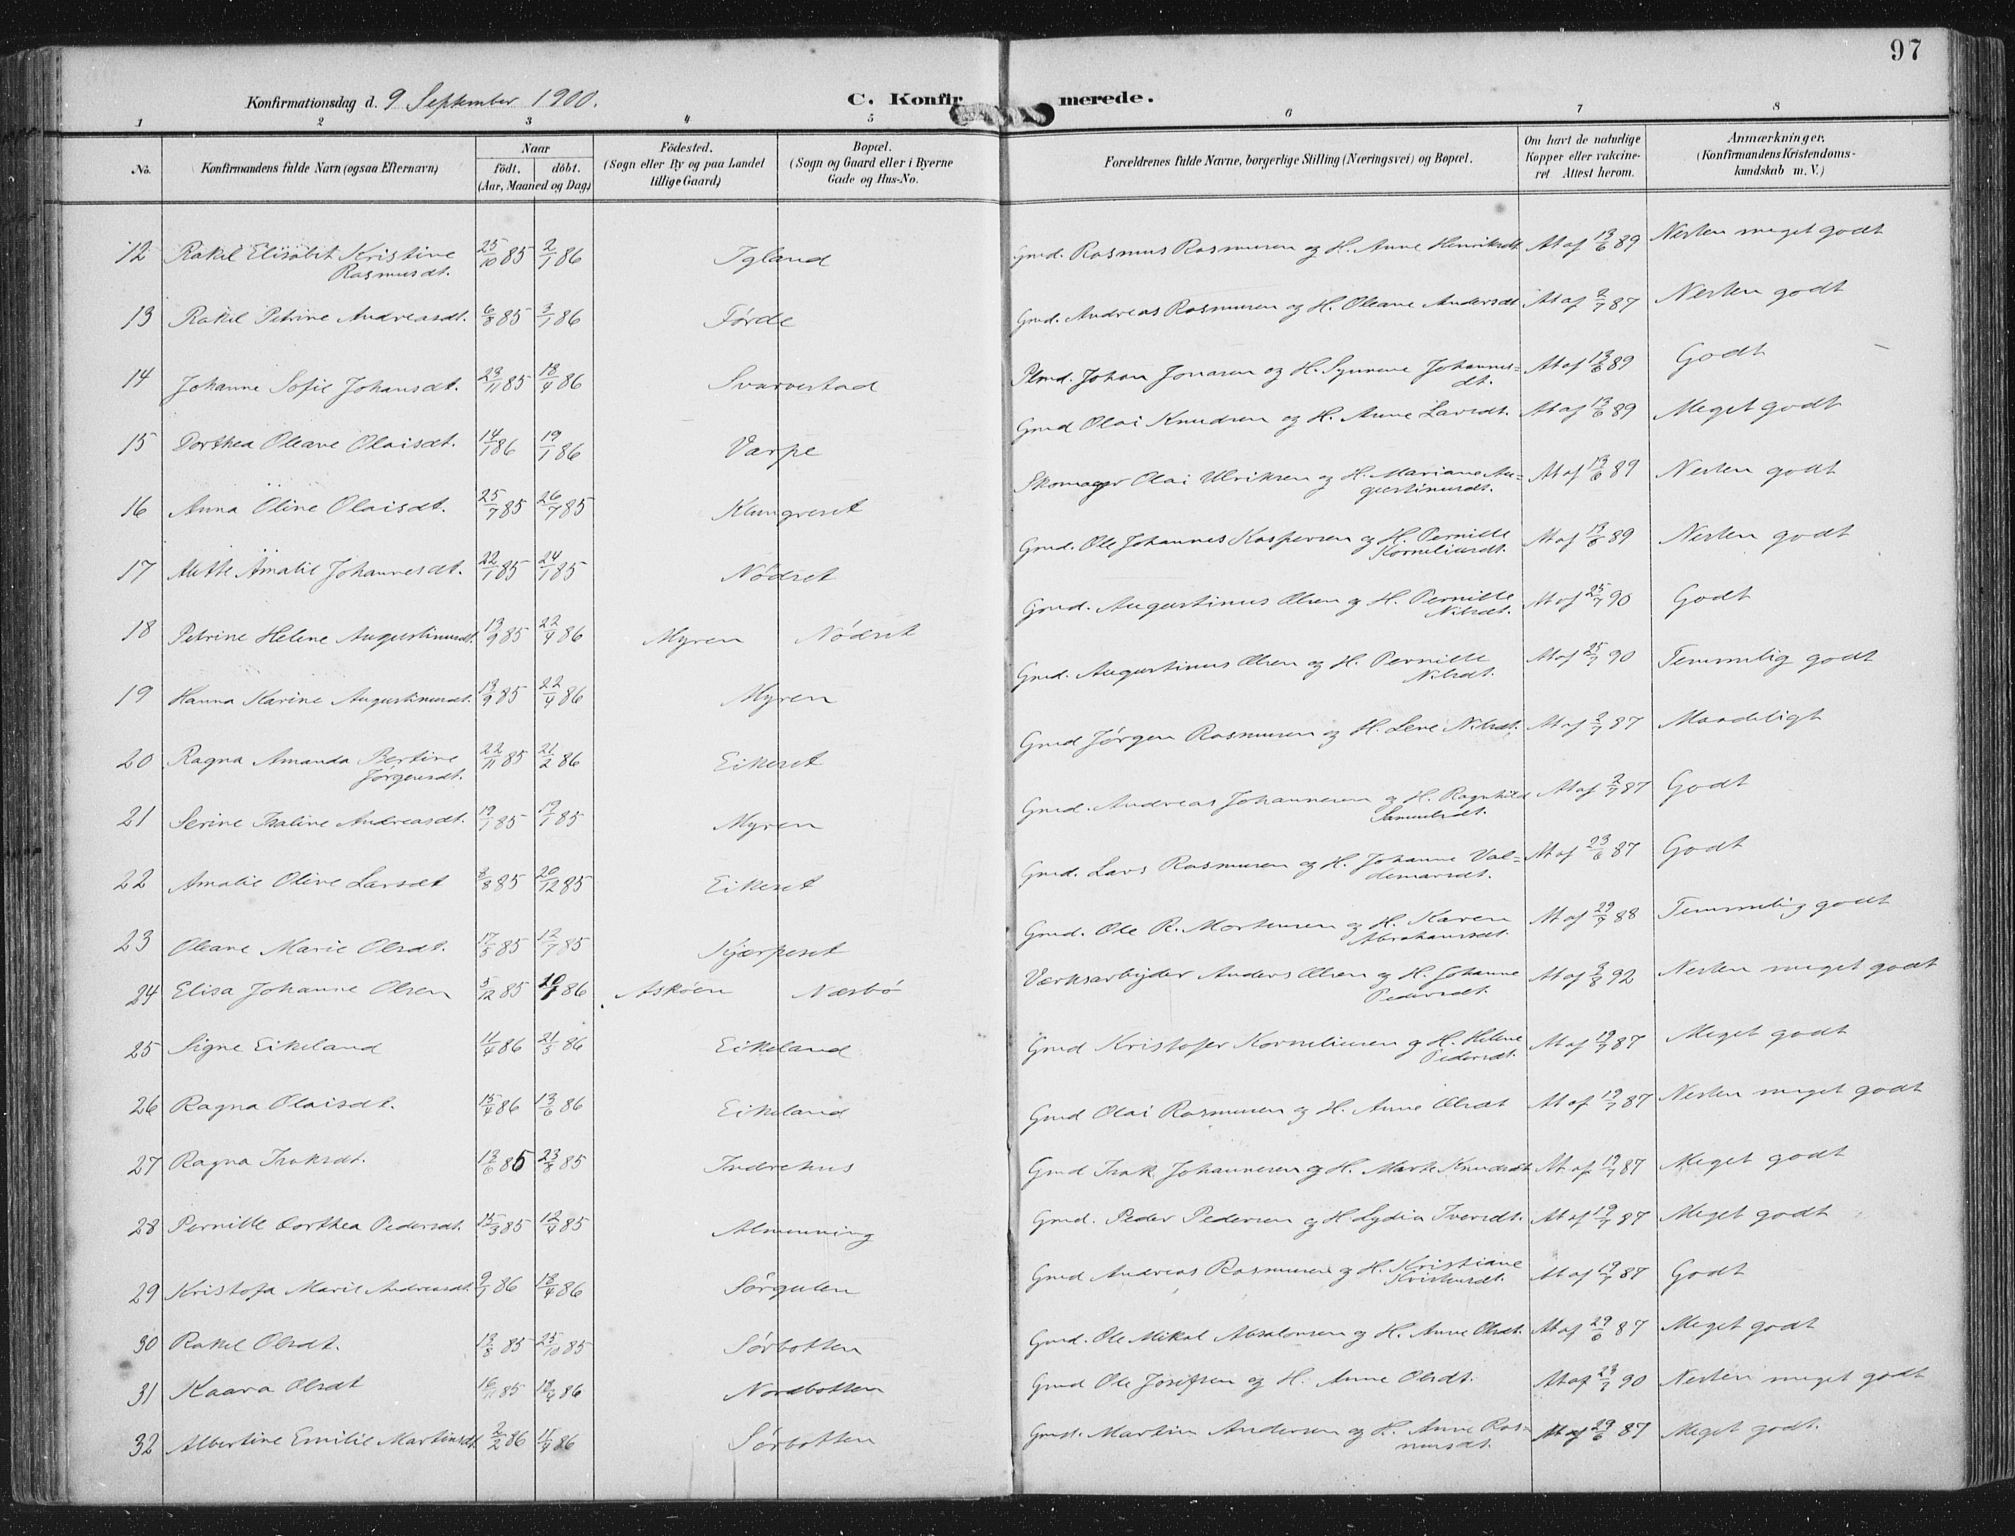 97
Konfirmationsdag d. 9 September 1900.
C. Konfirmerede.
1 2 3 4 5 6 7 8
No.
Konfirmandens fulde Navn (ogsaa Efternavn)
Naar
födt. döbt.
(Aar, Maaned og Dag)
Födested.
(Sogn eller By og paa Landet
tillige Gaard)
Bopæl.
(Sogn og Gaard eller i Byerne
Gade og Hus-No.
Forældrenes fulde Navne, borgerlige Stilling (Næringsvei) og Bopæl.
Om havt de naturlige
Kopper eller vakcine-
ret Attest herom.
Anmærkninger.
(Konfirmandens Kristendoms-
kundskab m. V.)
12 Rakel Elisabet Kristine Rasmusdt. 25/10 85 2/1 86 Igland Gmd. Rasmus Rasmusen og H. Anne Henriksdt At af 13/6 89 Nesten meget godt
13 Rakel Petrine Andreasdt. 6/8 85 3/1 86 Förde Gmd. Andreas Rasmusen og H. Oleane Andersdt At af 2/7 87 Nesten godt
14 Johanne Sofie Johansdt. 23/11 85 18/4 86 Svarvestad Plmd. Johan Jonasen og H. Synneve Johannes=dt. At af 13/6 89 Godt
15 Dorthea Oleane Olaisdt. 14/1 86 19/1 86 Varpe Gmd Olai Knudsen og H. Anne Larsdt. At af 13/6 89 Meget godt
16 Anna Oline Olaisdt. 25/7 85 26/7 85 Klungreset Skomager Olai Ulriksen og H. Mariane Au=gustinusdt. At af 13/6 89 Nesten godt
17 Mette Amalie Johannesdt. 22/1 85 24/1 85 Nödset Gmd. Ole Johannes Kaspersen og H. Pernille Korneliusdt. At af 13/6 89 Nesten godt
18 Petrine Helene Augustinusdt. 13/9 85 22/4 86 Myren Nödset Gmd. Augustinus Olsen og H. Pernille Nilsdt. At af 25/7 90 Godt
19 Hanna Karine Augustinusdt. 13/9 85 22/4 86 Myren Gmd. Augustinus Olsen og H. Pernille Nilsdt. At af 25/7 90 Temmelig godt
20 Ragna Amanda Bertine Jørgensdt. 22/11 85 21/2 86 Eikeset Gmd Jørgen Rasmusen og H. Lene Nilsdt. At af 2/7 87 Maadeligt
21 Serine Thaline Andreasdt. 19/1 85 19/1 85 Myren Gmd. Andreas Johannesen og H. Ragnhild Samuelsdt. At af 2/7 87 Godt
22 Amalie Oline Larsdt 8/8 85 20/12 85 Eikeset Gmd. Lars Rasmusen og H. Johanne Val=demarsdt. At af 23/6 87 Godt
23 Oleane Marie Olsdt. 17/5 85 12/7 85 Kjærpeset Gmd. Ole R. Mortensen og H. Karen Abrahamsdt. At af 29/7 88 Temmelig godt
24 Elisa Johanne Olsen 5/12 85 10/1 86 Askøen Næsbö Værksarbejder Anders Olsen og H. Johanne Pedersdt. At af 3/8 92 Nesten meget godt
25 Signe Eikeland 11/4 86 21/5 86 Eikeland Gmd Kristofer Korneliusen og H. Helene Pedersdt. At af 19/7 87 Meget godt
26 Ragna Olaisdt. 15/4 86 13/6 86 Eikeland Gmd Olai Rasmusen og H. Anne Olsdt At af 19/7 87 Nesten meget godt
27 Ragna Isaksdt. 13/6 85 23/8 85 Indrehus Gmd Isak Johannesen og H. Marte Knudsdt At af 19/7 87 Meget godt
28 Pernille Dorthea Pedersdt. 15/3 85 12/4 85 Almenning Gmd. Peder Pedersen og H Lydia Iversdt. At af 19/7 87 Meget godt
29 Kristofa Marie Andreasdt. 9/1 86 18/4 86 Sörgulen Gmd Andreas Rasmusen og H. Kristiane Kristensdt. At af 19/7 87 Godt
30 Rakel Olsdt. 13/8 85 25/10 85 Sørbotten Gmd. Ole Mikal Absalonsen og H. Anne Olsdt. At af 29/6 87 Meget godt
31 Kaara Olsdt 16/11 85 18/4 86 Nordbotten Gmd Ole Josefsen og H. Anne Olsdt. At af 23/7 90 Nesten meget godt
32 Albertine Emilie Martinsdt. 2/2 86 11/4 86 Sørbotten Gmd. Martin Andersen og H. Anne Ras=musdt. At af 29/6 87 Meget godt.